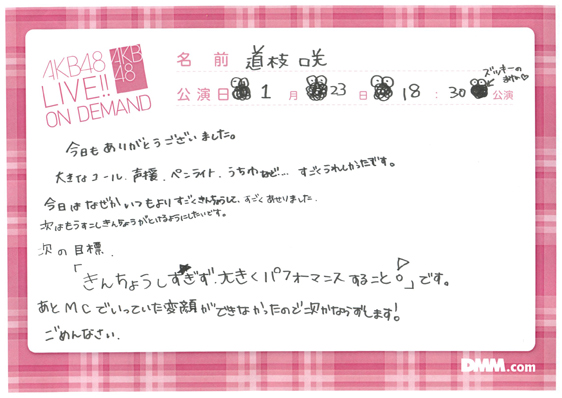 AKB48
LIVE!!
ON DEMAND
AKB
48
名前 道枝咲
公演日 1月 23日 18:30 公演
ズッキーの
今日もありがとうございました。
大きなコール、声援、ペンライト、うちわなど… すごくうれしかったです。
今日はなぜかいつもよりすごくきんちょうして、すごくあせりました.
次はもうすこしきんちょうがとけるようにしたいです。
次の目標.
「きんちょうしすぎず.大きくパフォーマンスすること。」です。
あとMCでいっていた変顔ができなかったので次かならずします!
ごめんなさい.
DMM.com